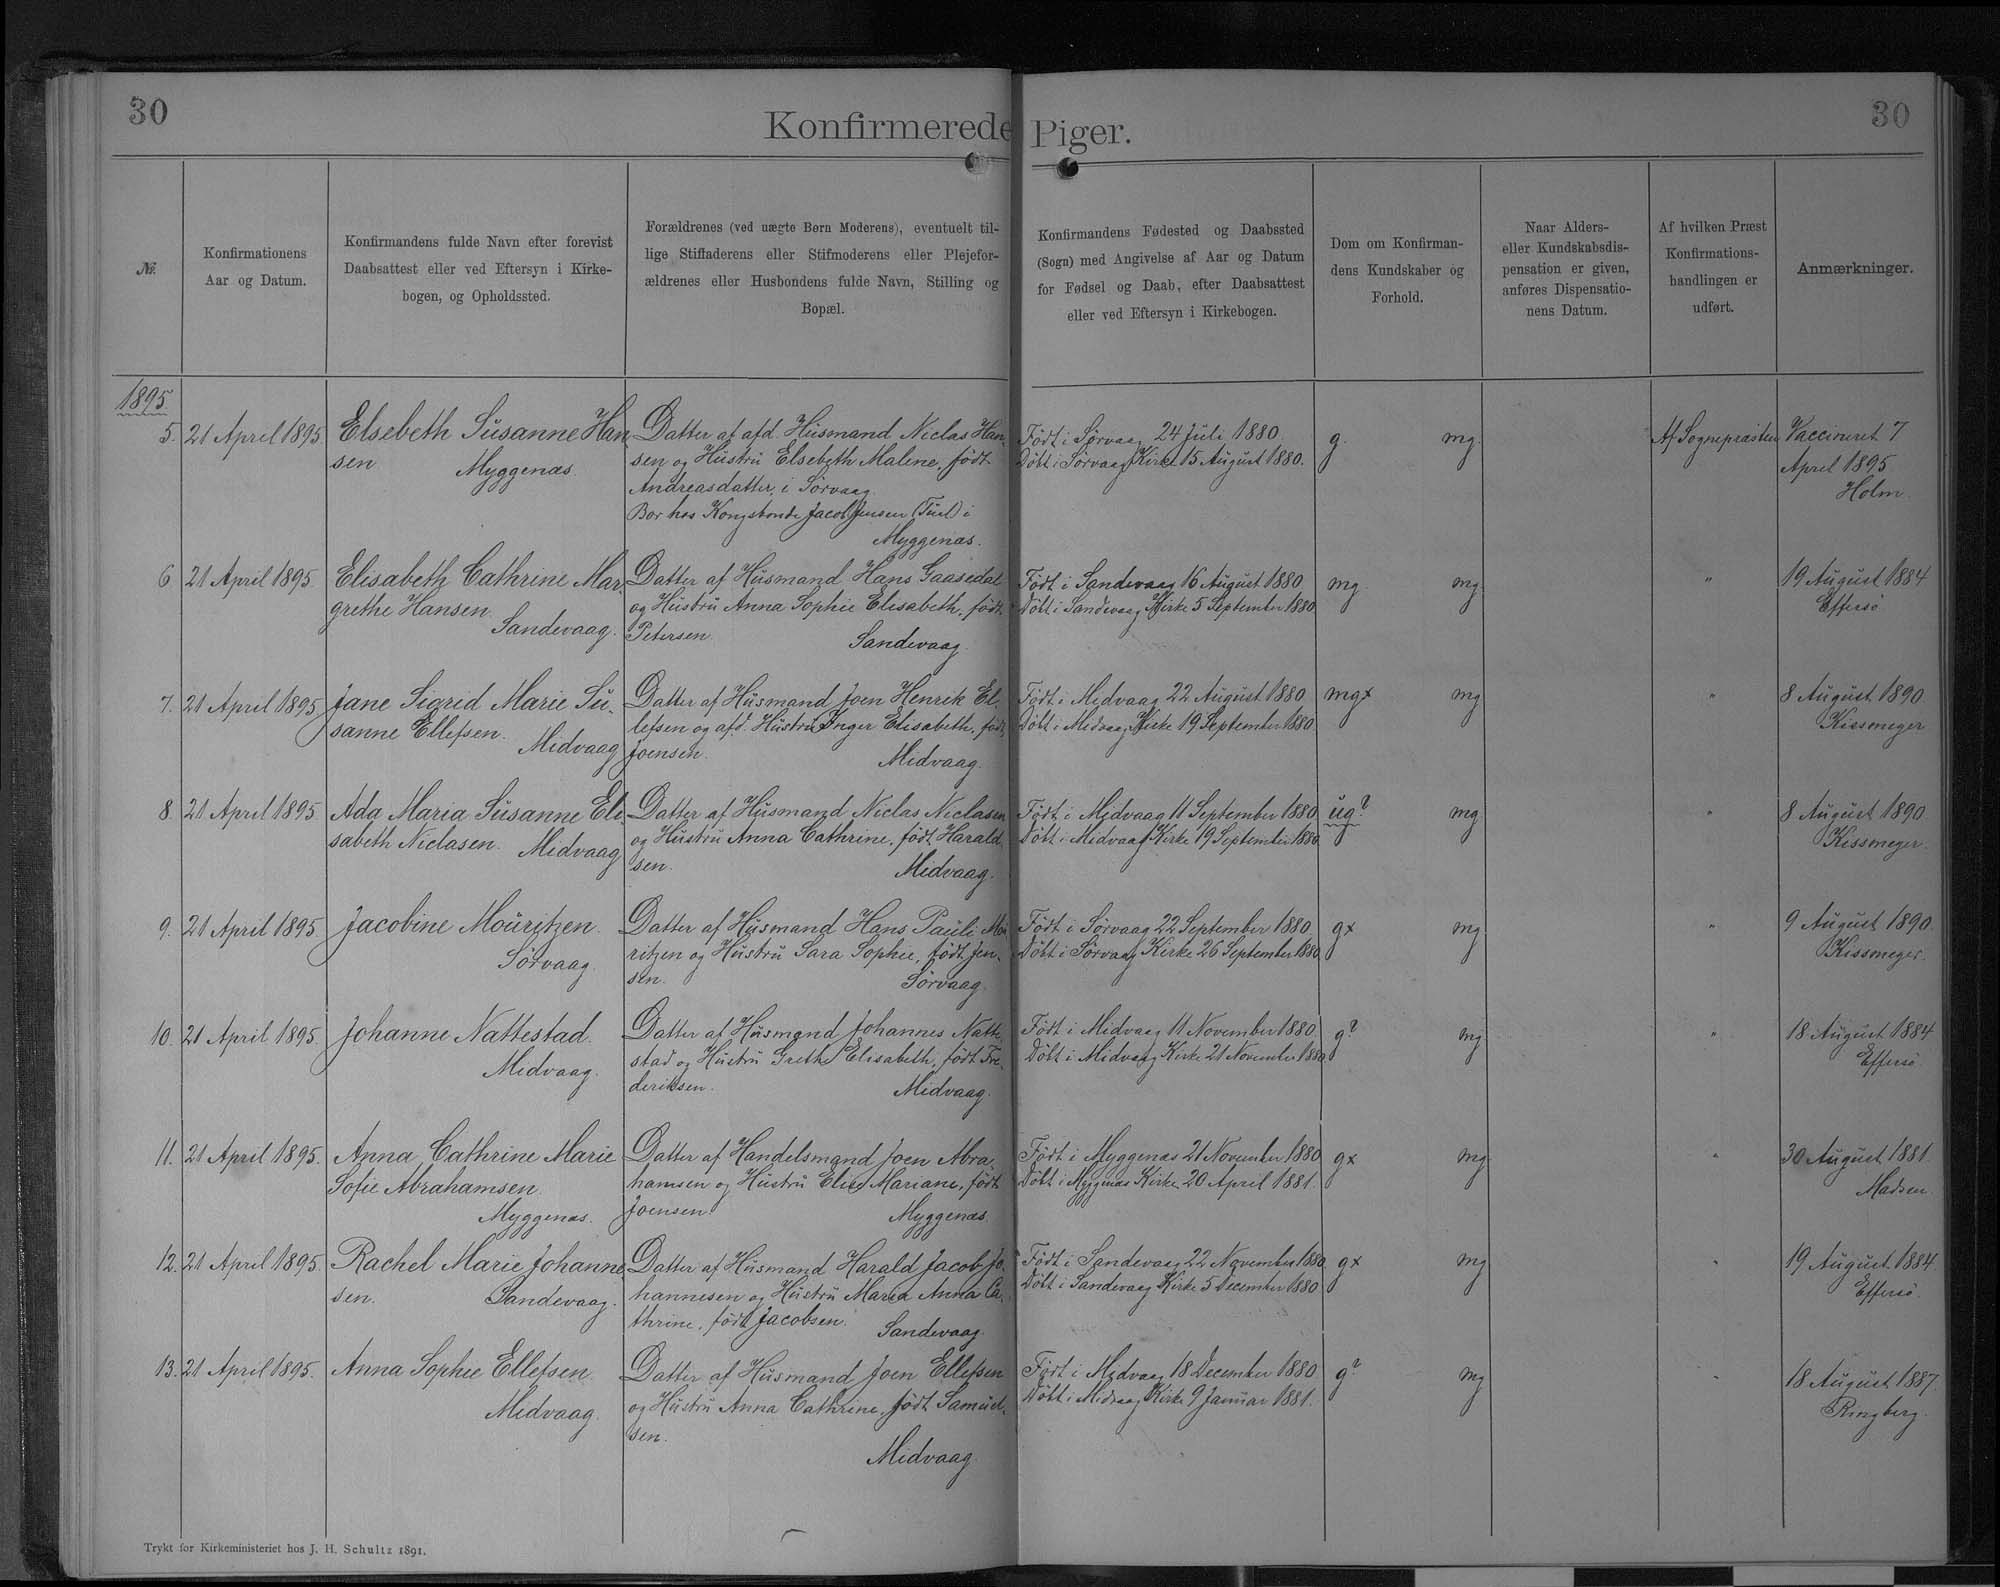 30
30
Konfirmerede Piger.
№.
Konfirmationens
Aar og Datum.
Konfirmandens fulde Navn efter forevist
Daabsattest eller ved Eftersyn i Kirke-
bogen, og Opholdssted.
Forældrenes (ved uægte Børn Moderens), eventuelt til-
lige Stiffaderens eller Stifmoderens eller Plejefor-
ældrenes eller Husbondens fulde Navn, Stilling og
Bopæl.
Konfirmandens Fødested og Daabssted
(Sogn) med Angivelse af Aar og Datum
for Fødsel og Daab, efter Daabsattest
eller ved Eftersyn i Kirkebogen.
Dom om Konfirman-
dens Kundskaber og
Forhold.
Naar Alders-
eller Kundskabsdis-
pensation er given,
anføres Dispensatio-
nens Datum.
Af hvilken Præst
Konfirmations-
handlingen er
udført.
Anmærkninger.
1895.
5. 21 April 1895
Elsebeth Susanne Han
sen
Myggenæs.
Datter af afd. Husmand Niclas Han,
sen og Hustru Elsebeth Malene, født
Andreasdatter, i Sörvaag.
Bor hos Kongsbonde Jacob Jensen i
Myggenæs.
Født i Sörvaag 24 Juli 1880.
Döbt i Sörvaag Kirke 15 August 1880.
g. mg.
Af Sognepræsten
Vaccineret 7
April 1895
Holm.
6 21 April 1895.
Elisabeth Cathrine Mar,
grethe Hansen.
Sandevaag.
Datter af Husmand Hans Gaasedal
og Hustru Anna Sophie Elisabeth, født
Petersen.
Sandevaag.
Født i Sandevaag 16 August 1880
Döbt i Sandevaag Kirke 5 September 1880
mg. mg.
"
19 August 1884
Effersö
7. 21 April 1895
Jane Sigrid Marie Su,
sanne Ellefsen.
Midvaag
Datter af Husmand Joen Henrik El,
lefsen og afd. Hustru Inger Elisabeth, født
Joensen.
Midvaag.
Født i Midvaag 22 August 1880
Döbt i Midvaag Kirke 19 September 1880.
mgx mg
"
8 August 1890
Kissmeyer
8. 21 April 1895.
Ada Maria Susanne Eli,
sabeth Niclasen.
Midvaag
Datter af Husmand Niclas Niclasen
og Hustru Anna Cathrine, født Harald,
sen.
Midvaag.
Født i Midvaag 11 September 1880.
Döbt i Midvaag Kirke 19 September 1880
ug? mg
"
8 August 1890
Kissmeyer.
9. 21 April 1895.
Jacobine Mouritzen.
Sörvaag.
Datter af Husmand Hans Pauli Mou
ritzen og Hustru Sara Sophie, født Jen,
sen.
Sörvaag.
Født i Sörvaag 22 September 1880.
Döbt i Sörvaag Kirke 26 September 1880
gx mg
"
9 August 1890.
Kissmeyer.
10. 21 April 1895.
Johanne Nattestad.
Midvaag.
Datter af Husmand Johannes Natte,
stad og Hustru Grethe Elisabeth, født Fre,
deriksen.
Midvaag.
Født i Midvaag 11 November 1880.
Döbt i Midvaag Kirke 21 November 1880.
g? mg
"
18 August 1884
Effersö.
11. 21 April 1895.
Anna Cathrine Marie
Sofie Abrahamsen.
Myggenæs.
Datter af Handelsmand Joen Abra,
hamsen og Hustru Else Mariane, født
Joensen.
Myggenæs.
Født i Myggenæs 21 November 1880
Döbt i Myggenæs Kirke 20 April 1881.
gx mg
"
30 August 1881.
Madsen.
12. 21 April 1895.
Rachel Marie Johanne
sen.
Sandevaag.
Datter af Husmand Harald Jacob Jo,
hannesen og Hustru Maria Anna Ca,
thrine, født Jacobsen.
Sandevaag.
Født i Sandevaag 22 November 1880.
Döbt i Sandevaag Kirke 5 December 1880
gx mg
"
19 August 1884.
Effersö.
13. 21 April 1895.
Anna Sophie Ellefsen
Midvaag.
Datter af Husmand Joen Ellefsen
og Hustru Anna Cathrine, født Samuel,
sen.
Midvaag
Født i Midvaag 18 December 1880.
Döbt i Midvaag Kirke 9 Januar 1881.
g? mg
"
18 August 1887.
Ringberg.
Trykt for Kirkeministeriet hos J. H. Schultz 1891.